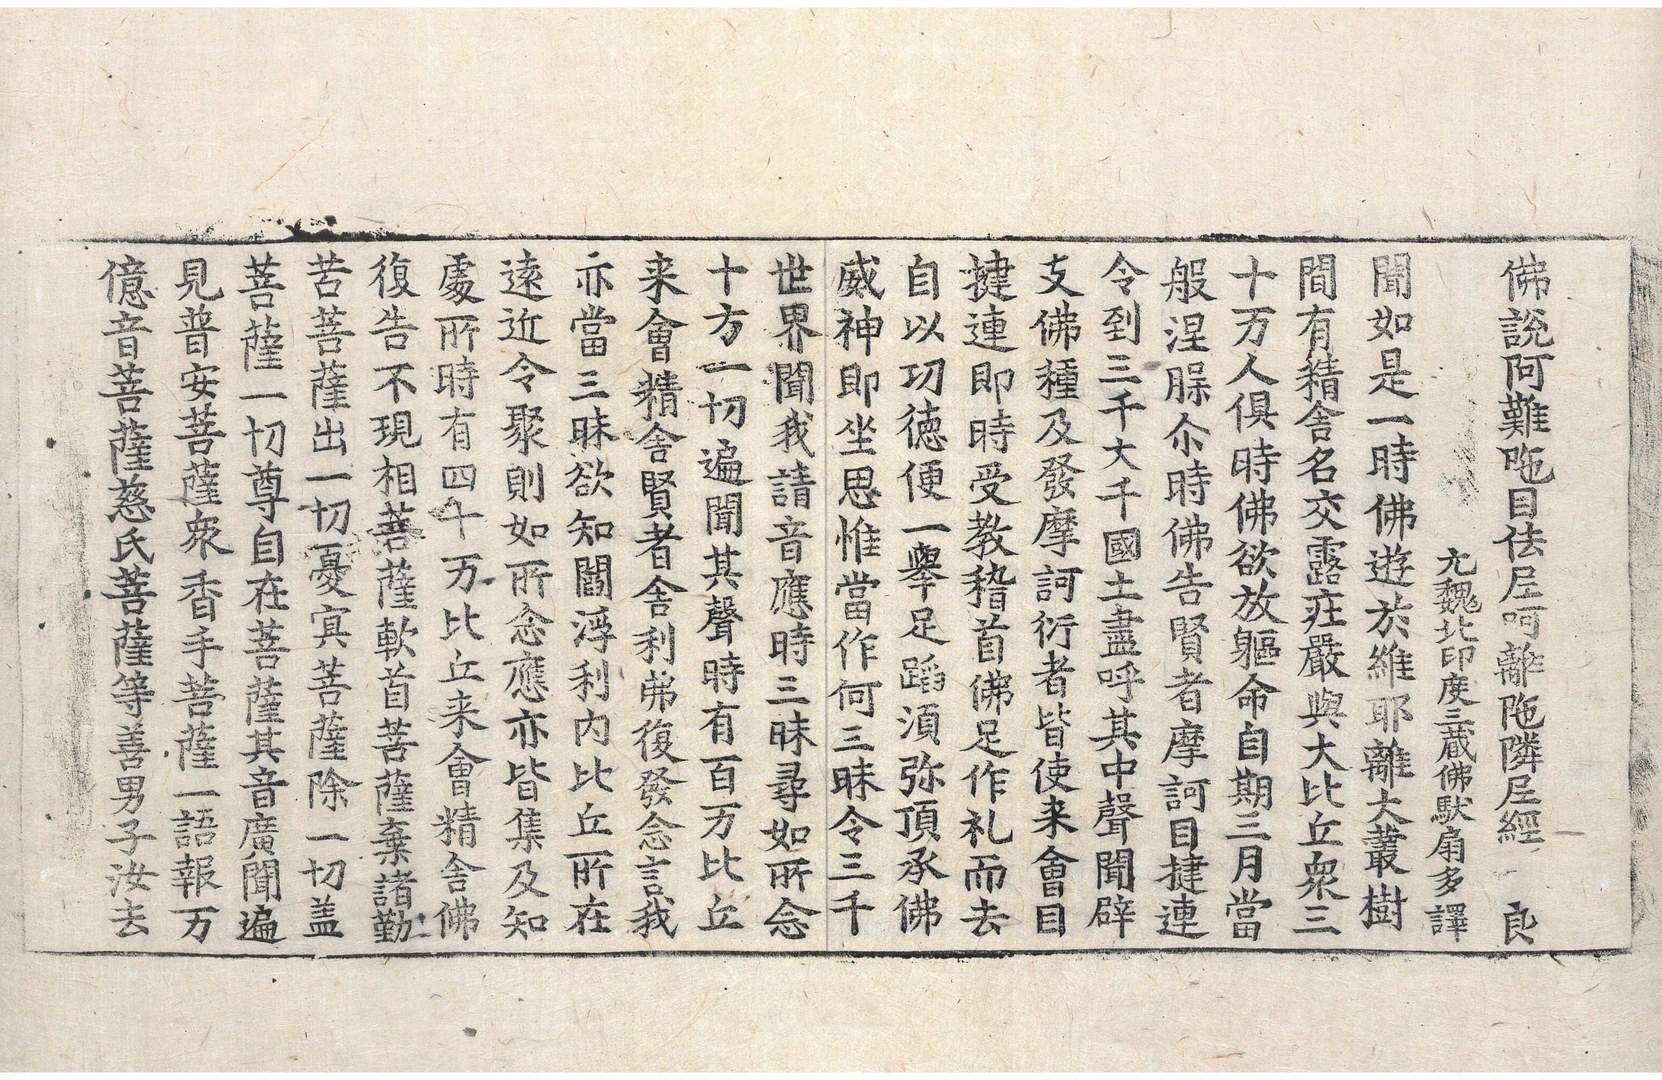 佛說阿難陁目佉尼呵離陁隣尼經　良
元魏北印度三藏佛馱扇多譯
聞如是一時佛遊於維耶離大叢樹
間有精舍名交露莊嚴與大比丘衆三
十万人俱時佛欲放軀命自期三月當
般涅槃尒時佛告賢者摩訶目揵連
令到三千大千國土盡呼其中聲聞辟
支佛種及發摩訶衍者皆使来會目
揵連即時受教稽首佛足作礼而去
自以功德便一舉足蹈須弥頂承佛
威神即坐思惟當作何三昧令三千
世界聞我請音應時三昧尋如所念
十方一切遍聞其聲時有百万比丘
来會精舍賢者舍利弗復發念言我
亦當三昧欲知閻浮利內比丘所在
遠近令聚則如所念應亦皆集及知
處所時有四十万比丘来會精舍佛
復告不現相菩薩軟首菩薩棄諸勤
苦菩薩出一切憂冥菩薩除一切盖
菩薩一切尊自在菩薩其音廣聞遍
見普安菩薩衆香手菩薩一語報万
億音菩薩慈氏菩薩等善男子汝去